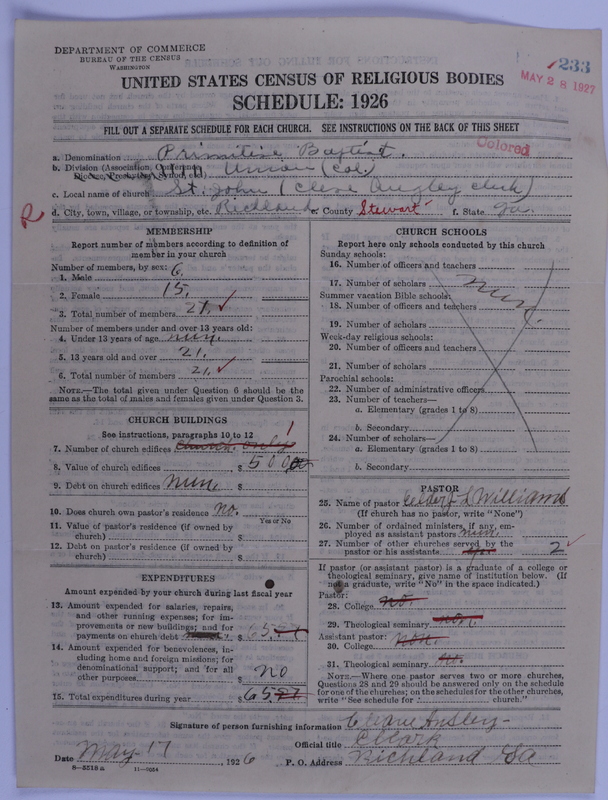 DEPARTMENT OF COMMERCE
BUREAU OF THE CENSUS
WASHINGTON
233
MAY 28 1927
UNITED STATES CENSUS OF RELIGIOUS BODIES
SCHEDULE: 1926
FILL OUT A SEPARATE SCHEDULE FOR EACH CHURCH. SEE INSTRUCTIONS ON THE BACK OF THIS SHEET
Colored
a. Denomination Primitive Baptist.
b. Division (Association, Conference, Diocese, Presbytery, Synod, etc.) Union (Col)
c. Local name of church St. John (Cleve Ansley clerk)
R d. City, town, village, or township, etc. Richland e. County Stewart f. State Ga
MEMBERSHIP
Report number of members according to definition of
member in your church
Number of members, by sex:
1. Male 6.
2. Female 15.
3. Total number of members 21.
Number of members under and over 13 years old:
4. Under 13 years of age nun.
5. 13 years old and over 21.
6. Total number of members 21.
NOTE.—The total given under Question 6 should be the
same as the total of males and females given under Question 3.
CHURCH BUILDINGS
See instructions, paragraphs 10 to 12
7. Number of church edifices church only 1
8. Value of church edifices $ 500
9. Debt on church edifices nun. $
10. Does church own pastor's residence? no.
Yes or No
11. Value of pastor's residence (if owned by
church) $
12. Debt on pastor's residence (if owned by
church) $
EXPENDITURES
Amount expended by your church during last fiscal year
13. Amount expended for salaries, repairs,
and other running expenses; for im-
provements or new buildings; and for
payments on church debt $ 65
14. Amount expended for benevolences, in-
cluding home and foreign missions; for
denominational support; and for all
other purposes $ no
15. Total expenditures during year $ 65
CHURCH SCHOOLS
Report here only schools conducted by this church
Sunday schools:
16. Number of officers and teachers
17. Number of scholars nun.
Summer vacation Bible schools:
18. Number of officers and teachers
19. Number of scholars
Week-day religious schools:
20. Number of officers and teachers
21. Number of scholars
Parochial schools:
22. Number of administrative officers
23. Number of teachers—
a. Elementary (grades 1 to 8)
b. Secondary
24. Number of scholars—
a. Elementary (grades 1 to 8)
b. Secondary
PASTOR
25. Name of pastor Elder L Williams
(If church has no pastor, write "None")
26. Number of ordained ministers, if any, em-
ployed as assistant pastors nun.
27. Number of other churches served by the
pastor or his assistants 2
If pastor (or assistant pastor) is a graduate of a college or
theological seminary, give name of institution below. (If
not a graduate, write "No" in the space indicated.)
Pastor:
28. College no.
29. Theological seminary non.
Assistant pastor:
30. College non.
31. Theological seminary no.
NOTE.—Where one pastor serves two or more churches,
Questions 28 and 29 should be answered only on the schedule
for one of the churches; on the schedules for the other churches,
write "See schedule for church."
Signature of person furnishing information Cleave Ansley
Official title Clark
Date May 17 1926 P. O. Address Richland Ga
8—5518 a 11—9054